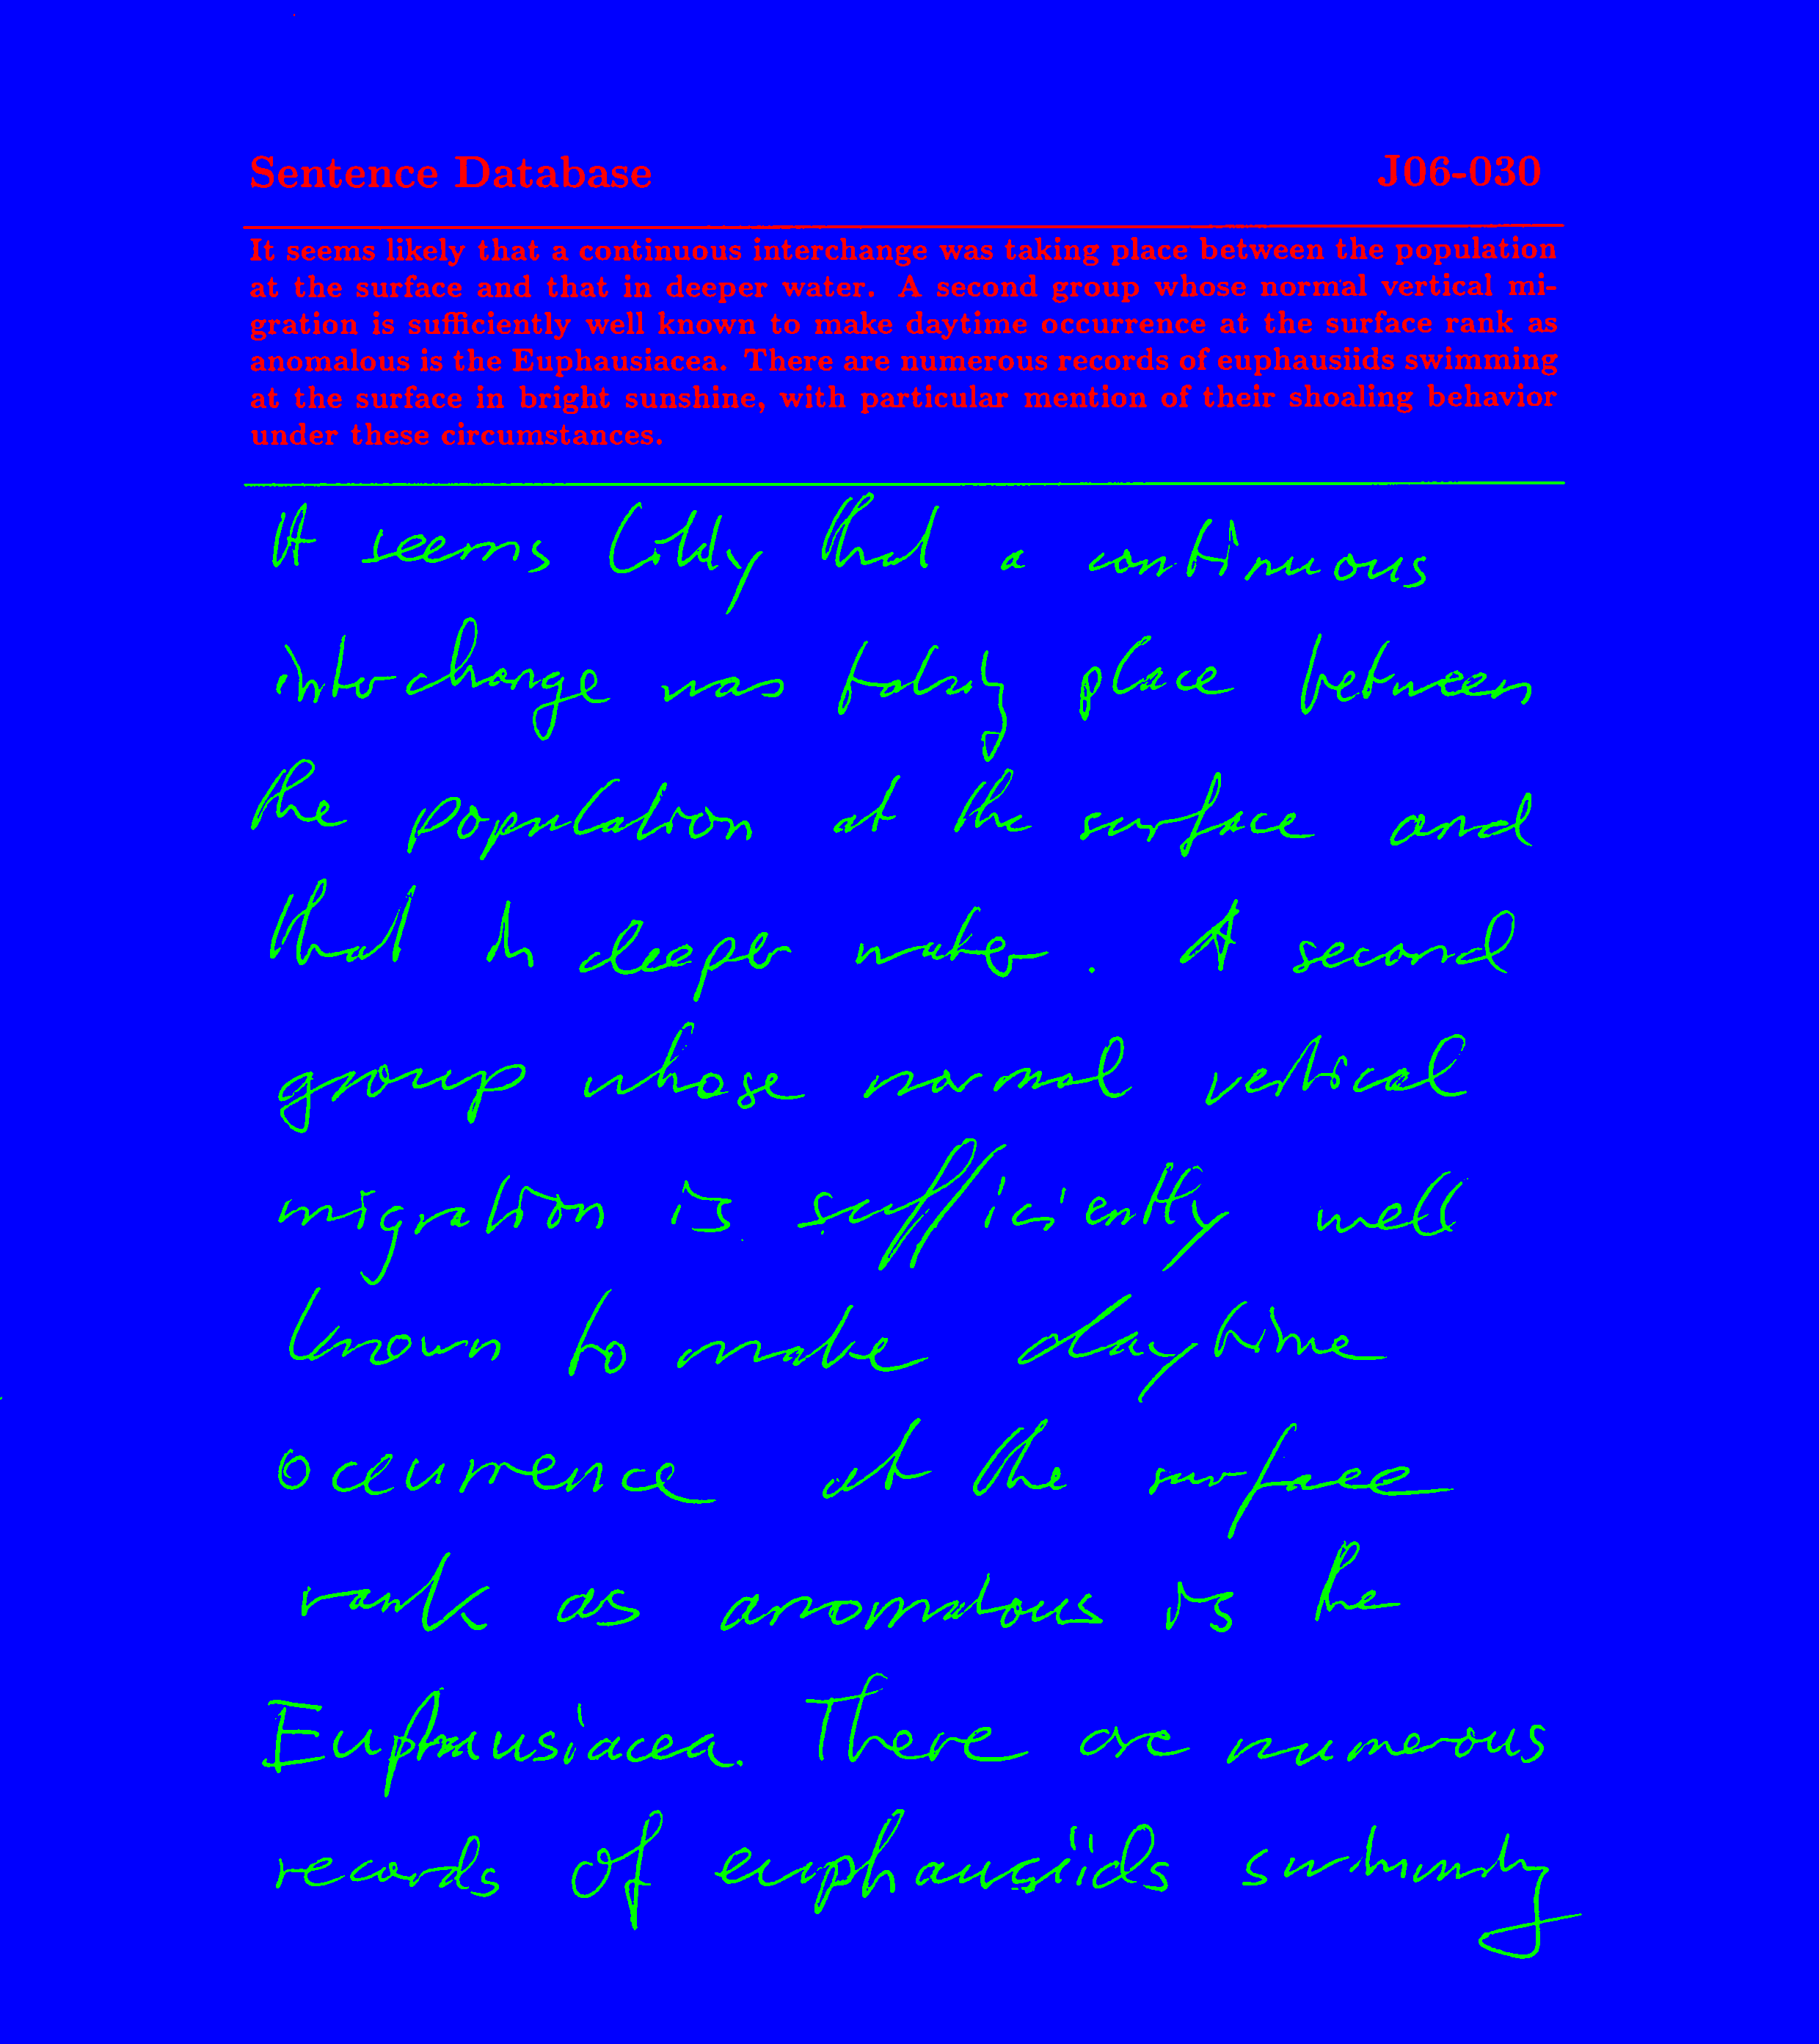 Sentence Database J06-030
It seems likely that a continuous interchange was taking place between the population
at the surface and that in deeper water. A second group whose normal vertical mi-
gration is sufficiently well known to make daytime occurrence at the surface rank as
anomalous is the Euphausiacea. There are numerous records of euphausiids swimming
at the surface in bright sunshine, with particular mention of their shoaling behavior
under these circumstances.
It seems likely that a continuous
interchange was taking place between
the population at the surface and
that in deeper water. A second
group whose normal vertical
migration is sufficiently well
known to make daytime
occurrence at the surface
rank as anomalous is the
Euphausiacea. There are numerous
records of euphausiids swimming